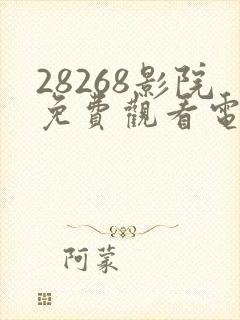 28268影院
免費觀看電
阿蒙